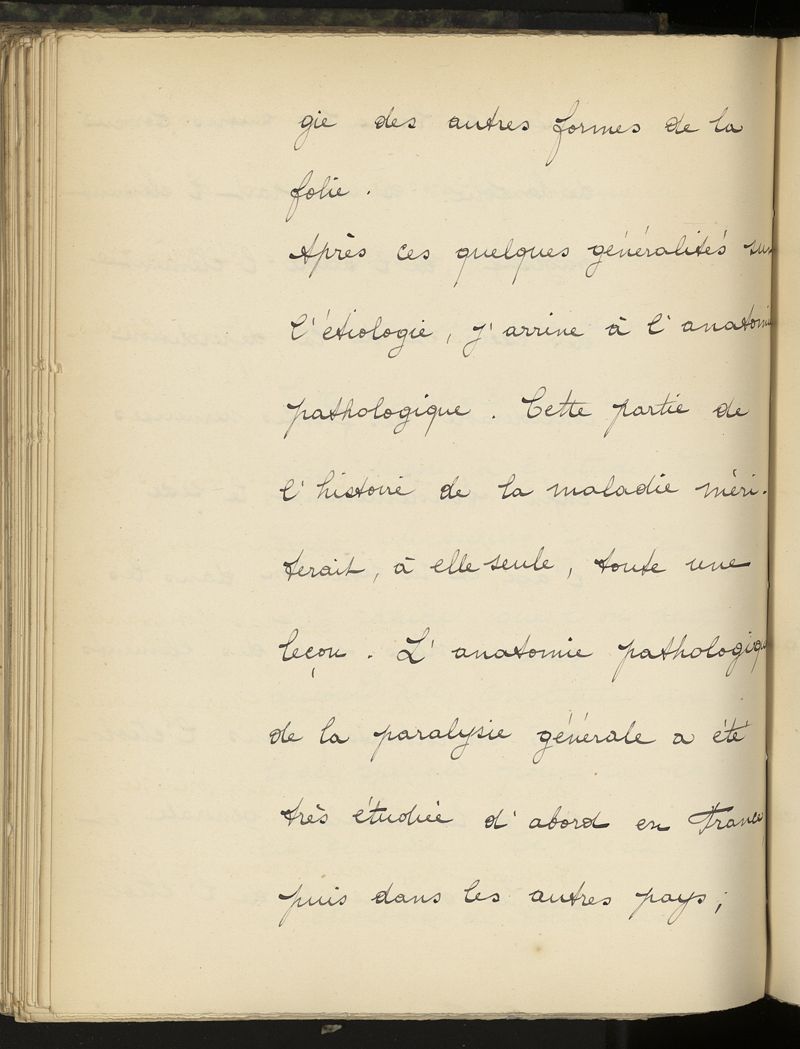 gie des autres formes de la
folie.
Après ces quelques généralités sur
l'étiologie, j'arrive à l'anatomie
pathologique. Cette partie de
l'histoire de la maladie méri-
terait, à elle seule, toute une
leçon. L'anatomie pathologique
de la paralysie générale a été
très étudiée d'abord en France,
puis dans les autres pays;